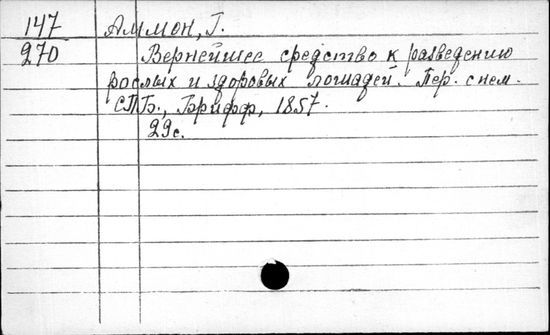 147 Аммон, Г.
270 Вернейшее средство к разведению
рослых и здоровых лошадей. Пер. с нем.
СПБ., Брифф, 1857.
29 с.